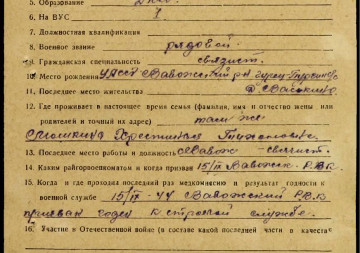 5. Образование
6. На ВУС 1
7. Должностная квалификация
8. Военное звание рядовой.
9. Гражданская специальность связист.
10. Место рождения УАССР Вавожский р-н
11. Последнее место жительства
12. Где проживает в настоящее время семья (фамилия, имя и отчество жены или
родителей и точный их адрес) там же
13. Последнее место работы и должность связист.
14. Каким райгорвоенкоматом и когда призван 15/IX Вавожск. РВК
15. Когда и где проходил последний раз медкомиссию и результат годности к
военной службе 15/IX-44 Вавожский РВК
признан годен к строевой службе.
16. Участие в Отечественной войне (в составе какой последней части в качестве